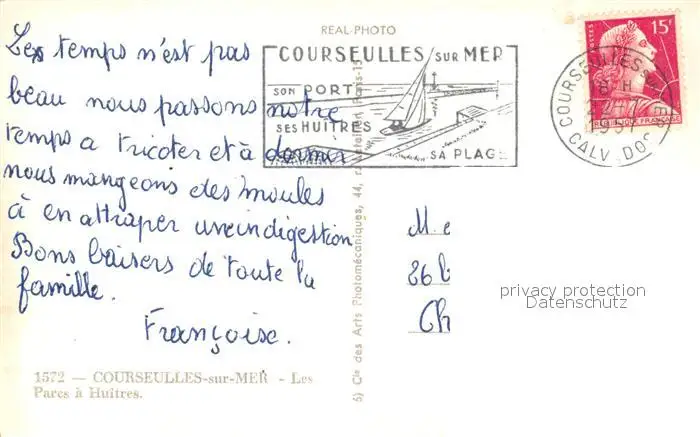 REAL-PHOTO
Les temps n'est pas
beau nous passons notre
temps a tricoter et à dormir
nous mangeons des moules
à en attraper une indigestion
Bons baisers de toute la
famille.
Françoise.
COURSEULLES SUR MER
SON PORT
SES HUITRES
SA PLAGE
15F
POSTES
REPUBLIQUE FRANÇAISE
COURSEULLES
CALVADOS
M. e
26 b
Ch
privacy protection
Datenschutz
Cie des Arts Photomécaniques, 44,
1572 — COURSEULLES-sur-MER - Les
Parcs à Huîtres.